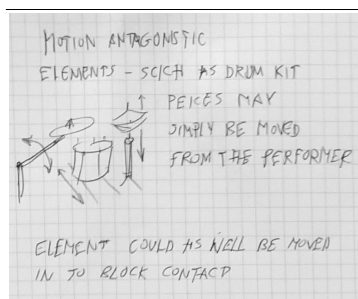 MOTION ANTAGONSTIC
ELEMENTS - SCICH AS DRUM KIT
PEICES MAY
SIMPLY BE MOVED
FROM THE PERFORMER
ELEMENT COULD AS WELL BE MOVED
IN TO BLOCK CONTACT